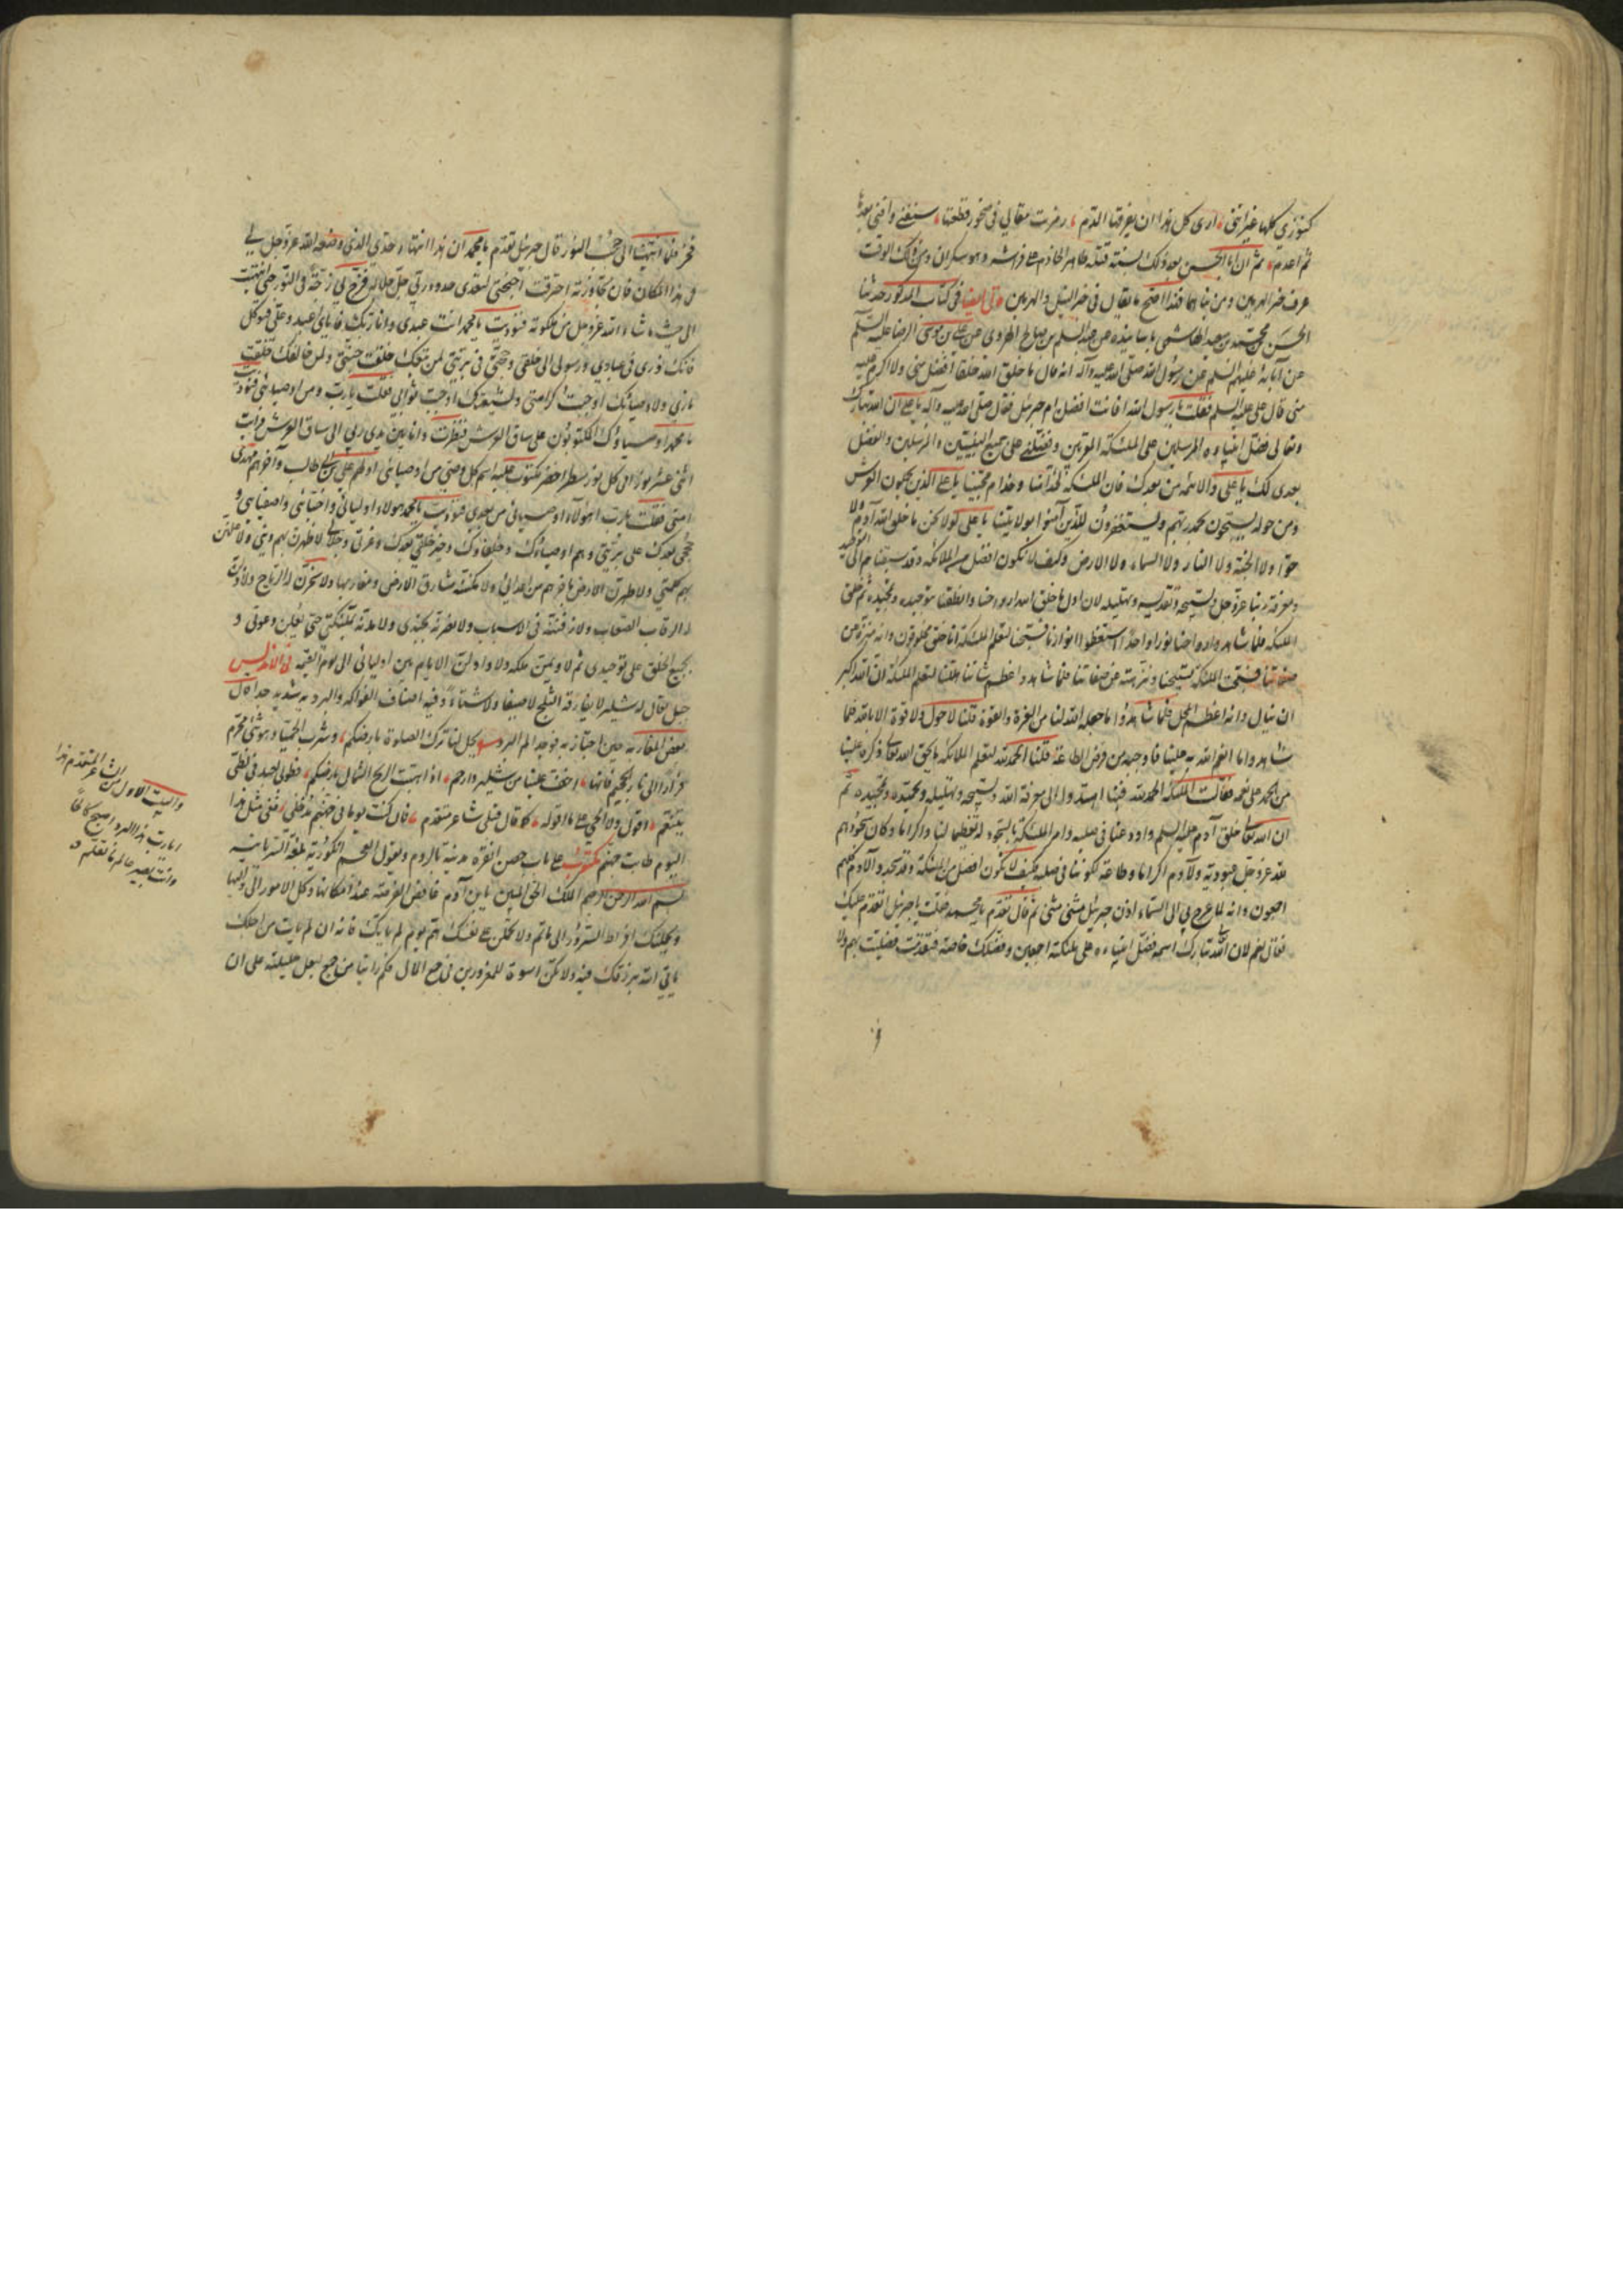 كنوزى كلها غير اننى ارى كل هذا ان يفرقها الدم رمزت مقالى فى صخور قطعتها ستفنى وافنى بعدها
ثم اعدم ثم ان ابا الجيش بعد ذلك بسنة قتله طاهر الخادم على فراشه وهو سكران وفى ذلك الوقت
عرف خبر الهرمين ومن بناهما فهذا اصح ما يقال فى خبر النيل والهرمين وفى ايضا فى كتاب المذكور حدثنا
الحسن بن محمد بن سعيد الهاشمى باسانيده عن عبد السلم بن صالح الهروى عن على بن موسى الرضا عليه السلم
عن آبائه عليهم السلم عن رسول الله صلى الله عليه وآله انه قال ما خلق الله خلقا افضل منى ولا اكرم عليه
منى قال على عليه السلم فقلت يا رسول الله افانت افضل ام جبرئيل فقال صلى الله عليه وآله يا على ان الله تبارك
وتعالى فضل انبياءه المرسلين على الملئكة المقربين وفضلنى على جميع النبيين والمرسلين والفضل
بعدى لك يا على والائمة من بعدك فان الملئكة لخدامنا وخدام محبينا يا على الذين يحملون العرش
ومن حوله يسبحون بحمد ربهم ويستغفرون للذين آمنوا بولايتنا يا على لولا نحن ما خلق الله آدم ولا
حوا ولا الجنة ولا النار ولا السماء ولا الارض وكيف لا نكون افضل من الملائكة وقد سبقناهم الى التوحيد
ومعرفة ربنا عز وجل وتسبيحه وتقديسه وتهليله لان اول ما خلق الله ارواحنا وانطقنا بتوحيده وتمجيده ثم خلق
الملئكة فلما شاهدوا ارواحنا نورا واحدا استعظموا انوارنا فسبحنا لتعلم الملئكة انا خلق مخلوقون وانه منزه عن
صفاتنا فسبحت الملئكة بتسبيحنا ونزهته عن صفاتنا فلما شاهدوا عظم شاننا هللنا لتعلم الملئكة ان الله اكبر
ان ينال وانه اعظم المحل فلما شاهدوا ما جعله الله لنا من العزة والقوة قلنا لا حول ولا قوة الا بالله فلما
شاهدوا ما انعم الله به علينا واوجبه من فرض الطاعة قلنا الحمد لله لتعلم الملائكة ما يحق الله تعالى ذكره علينا
من الحمد على نعمه فقالت الملئكة الحمد لله فبنا اهتدوا الى معرفة الله وتسبيحه وتهليله وتحميده وتمجيده ثم
ان الله تعالى خلق آدم عليه السلم واودعنا فى صلبه وامر الملئكة بالسجود له تعظيما لنا واكراما وكان سجودهم
لله عز وجل عبودية ولآدم اكراما وطاعة لكوننا فى صلبه فكيف لا نكون افضل من الملئكة وقد سجدوا لآدم كلهم
اجمعون وانه لما عرج بى الى السماء اذن جبرئيل مثنى مثنى ثم قال تقدم يا محمد فقلت يا جبرئيل اتقدم عليك
فقال نعم لان الله تبارك اسمه فضل انبياءه على ملئكته اجمعين وفضلك خاصة فتقدمت فصليت بهم ولا
فخر فلما انتهينا الى حجب النور قال جبرئيل تقدم يا محمد ان هذا انتهاء حدى الذى وضعه الله عز وجل لى
فى هذا المكان فان تجاوزته احترقت اجنحتى لتعدى حدود ربى جل جلاله فزخ بى زخة فى النور حتى انتهيت
الى حيث ما شاء الله عز وجل من ملكوته فنوديت يا محمد انت عبدى وانا ربك فاياى فاعبد وعلى فتوكل
فانك نورى فى عبادى ورسولى الى خلقى وحجتى فى بريتى لمن تبعك خلقت جنتى ولمن خالفك خلقت
نارى ولاوصيائك اوجبت كرامتى ولشيعتك اوجبت ثوابى فقلت يا رب ومن اوصيائى فنوديت
يا محمد اوصياؤك المكتوبون على ساق العرش فنظرت وانا بين يدى ربى الى ساق العرش فرايت
اثنى عشر نورا فى كل نور سطرا اخضر مكتوب عليه اسم كل وصى من اوصيائى اولهم على بن ابى طالب وآخرهم مهدى
امتى فقلت يا رب اهؤلاء اوصيائى من بعدى فنوديت يا محمد هؤلاء اوليائى واحبائى واصفيائى و
حججى بعدك على بريتى وهم اوصياؤك وخلفاؤك وخير خلقى بعدك وعزتى وجلالى لاظهرن بهم دينى ولاعلين
بهم كلمتى ولاطهرن الارض باخرهم من اعدائى ولامكننه مشارق الارض ومغاربها ولاسخرن له الرياح ولاذللن
له الرقاب الصعاب ولارقينه فى الاسباب ولانصرنه بجندى ولامدنه بملئكتى حتى يعلن دعوتى و
يجمع الخلق على توحيدى ثم لاديمن ملكه ولاداولن الايام بين اوليائى الى يوم القيمة فى الاندلس
جبل يقال له شلير لا يفارقه الثلج لا صيفا ولا شتاء وفيه اصناف الفواكه والبرد به شديد جدا قال
بعض المغاربة حين اجتاز به فوجد الم البرد يحل لنا ترك الصلوة بارضكم وشرب الحميا وهو شئ محرم
فرارا الى نار الجحيم فانها اخف علينا من شلير وارحم اذا هبت الريح الشمال بارضكم فطوبى لعبد فى لظى
يتنعم اقول ولا الحى على ما اقوله كما قال قبلى شاعر متقدم فان كنت يوما فى جهنم مدخلى ففى مثل هذا
اليوم طابت جهنم مكتوب على باب حصن انقره مدينة بالروم ويقول العجم انكورية بلغة السريانية
بسم الله الرحمن الرحيم الملك الحق المبين يا بن آدم غافص الفرصة عند امكانها وكل الامور الى وليها
ولا يحملنك افراط السرور الى ماثم ولا تحملن على نفسك هم يوم لم ياتك فانه ان لم يات من اجلك
ياتى الله برزقك فيه ولا تكن اسوة للمغرورين فى جمع المال فكم راينا من جمع لبعل حليلته على ان
والبيت الاول من الشاعر المتقدم هذا
ايا رب هذا البرد اصبح كالحا
وانت بصير عالم ما تعلم